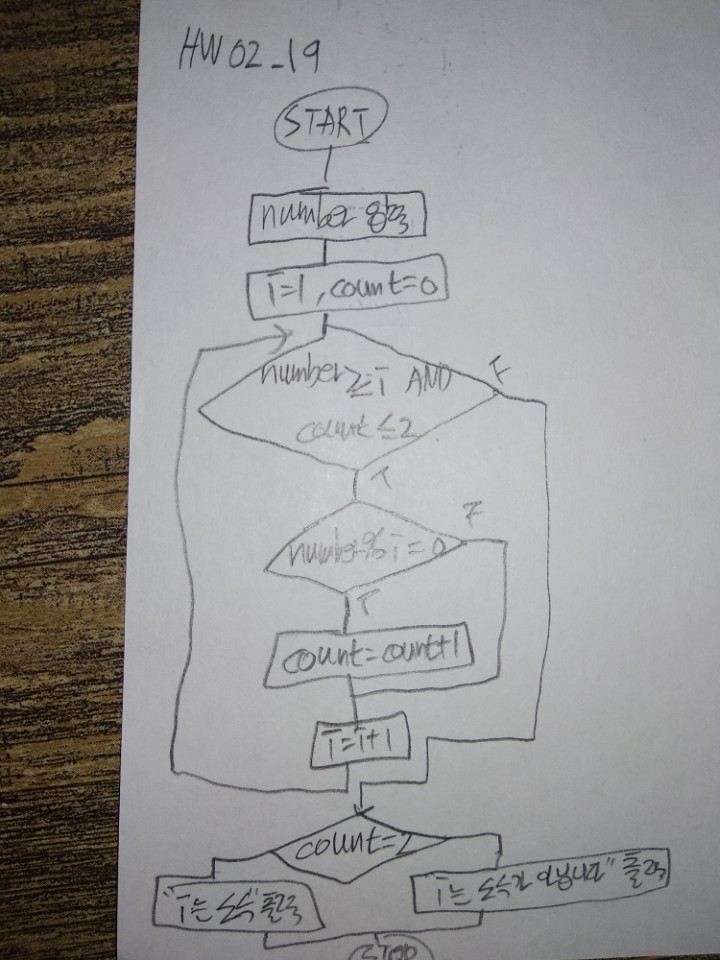 HW02_19
START
number 입력
i=1, count=0
number≥i AND
F
count≤2
T
F
number%i=0
T
count=count+1
i=i+1
count=2
"i는 소수" 출력
"i는 소수가 아닙니다" 출력
STOP